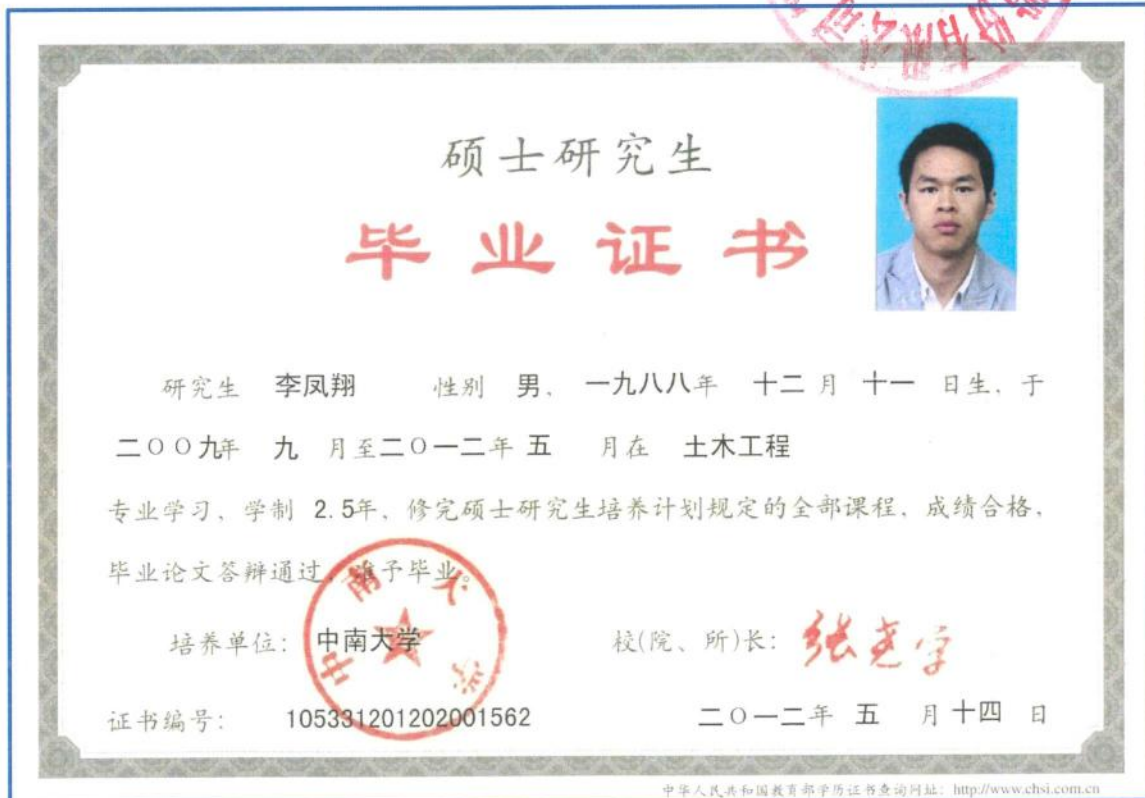 份有限公司
硕士研究生
毕业证书
研究生 李凤翔 性别 男、 一九八八年 十二 月 十一 日生、于
二〇〇九年 九 月至二〇一二年 五 月在 土木工程
专业学习、学制 2.5年、修完硕士研究生培养计划规定的全部课程、成绩合格、
毕业论文答辩通过、准予毕业。
中南大学
培养单位: 中南大学 校(院、所)长: 张尧学
证书编号: 105331201202001562 二〇一二年 五 月 十四 日
中华人民共和国教育部学历证书查询网址: http://www.chsi.com.cn